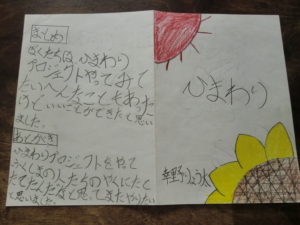 まとめ
ぼくたちは ひまわり
プロジェクトやってみて
たいへんなこともあった
けどいいことができたと思い
ました。
あとがき
ひまわりプロジェクトをやて
人たちのやくにたて
と思てまたやりたい
と思いました。
ひまわり
幸野りょう太